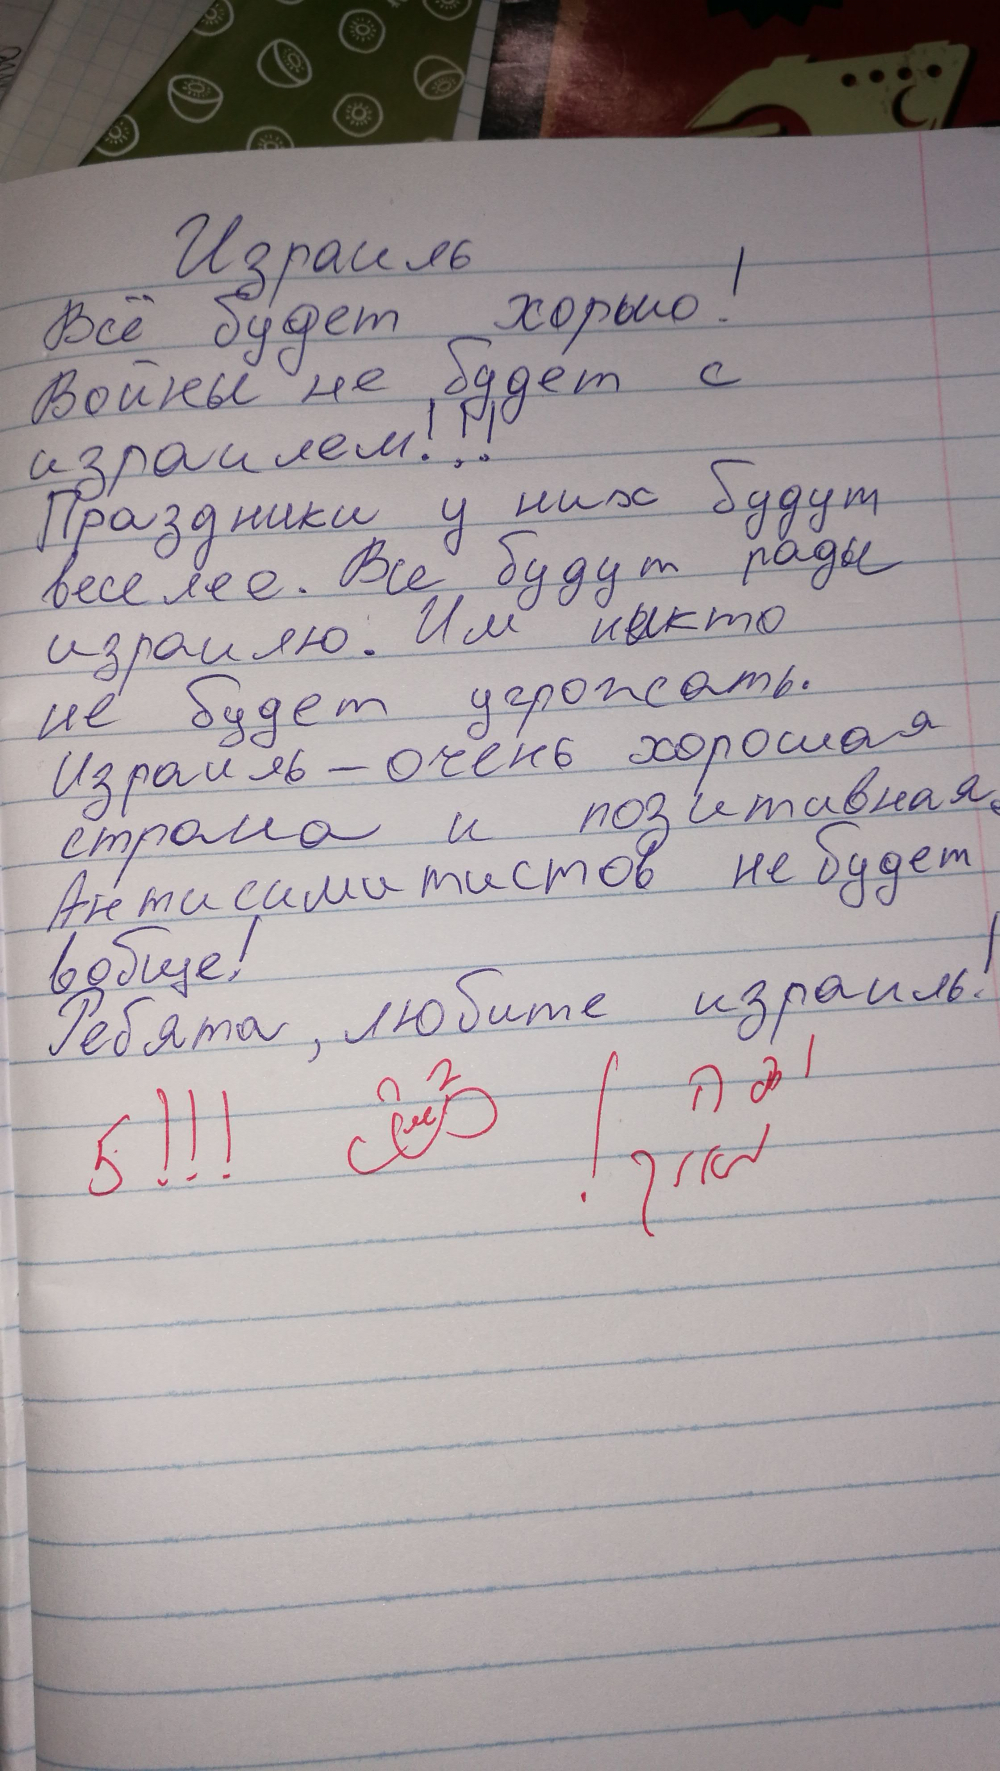 Израиль
Всё будет хорошо!
Войны не будет с
израилем!!!
Праздники у них будут
веселее. Все будут рады
израилю. Им никто
не будет угрожать.
Израиль – очень хорошая
страна и позитивная.
Антисимитистов не будет
вобще!
Ребята, любите израиль!
5!!!
יפה
מאוד!